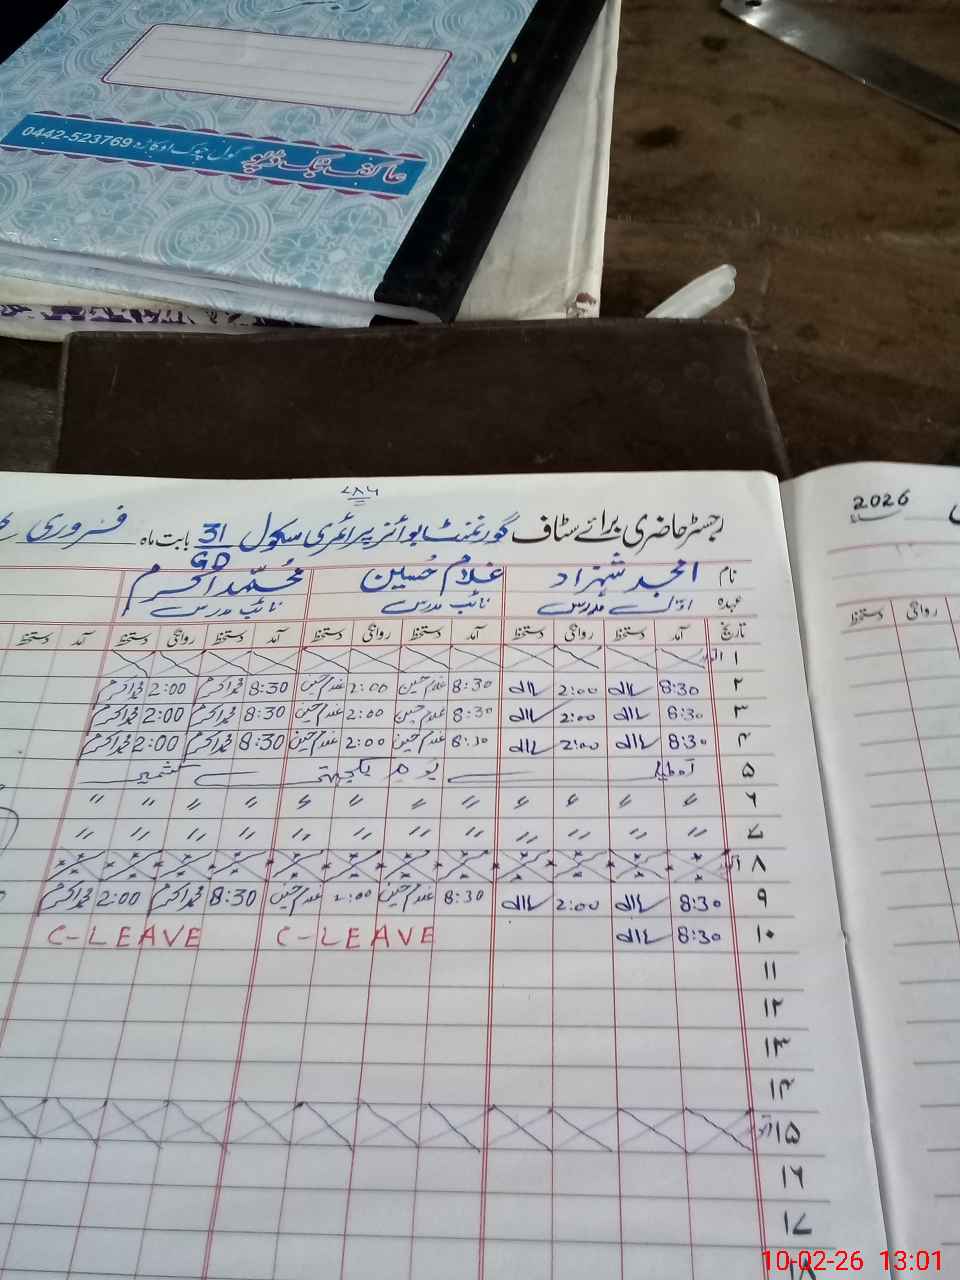 رجسٹر
عاکف بک ڈپو گول چوک اوکاڑہ 0442-523769
۷۸۶
2026
رجسٹر حاضری برائے سٹاف گورنمنٹ بوائز پرائمری سکول 31 GD بابت ماہ فروری
نام امجد شہزاد غلام حسین محمد اکرم
عہدہ اول مدرس نائب مدرس نائب مدرس
تاریخ آمد دستخط روانگی دستخط آمد دستخط روانگی دستخط آمد دستخط روانگی دستخط آمد دستخط
روانگی دستخط
۱
۲ 8:30 2:00 8:30 غلام حسین 2:00 غلام حسین 8:30 محمد اکرم 2:00 محمد اکرم
۳ 8:30 2:00 8:30 غلام حسین 2:00 غلام حسین 8:30 محمد اکرم 2:00 محمد اکرم
۴ 8:30 2:00 8:30 غلام حسین 2:00 غلام حسین 8:30 محمد اکرم 2:00 محمد اکرم
۵ یوم یکجہتی کشمیر
۶ " " " " " " " " " " " "
۷ " " " " " " " " " " " "
۸
۹ 8:30 2:00 8:30 غلام حسین 2:00 غلام حسین 8:30 محمد اکرم 2:00 محمد اکرم
۱۰ 8:30 C-LEAVE C-LEAVE
۱۱
۱۲
۱۳
۱۴
۱۵
۱۶
۱۷
۱۸
10-02-26 13:01